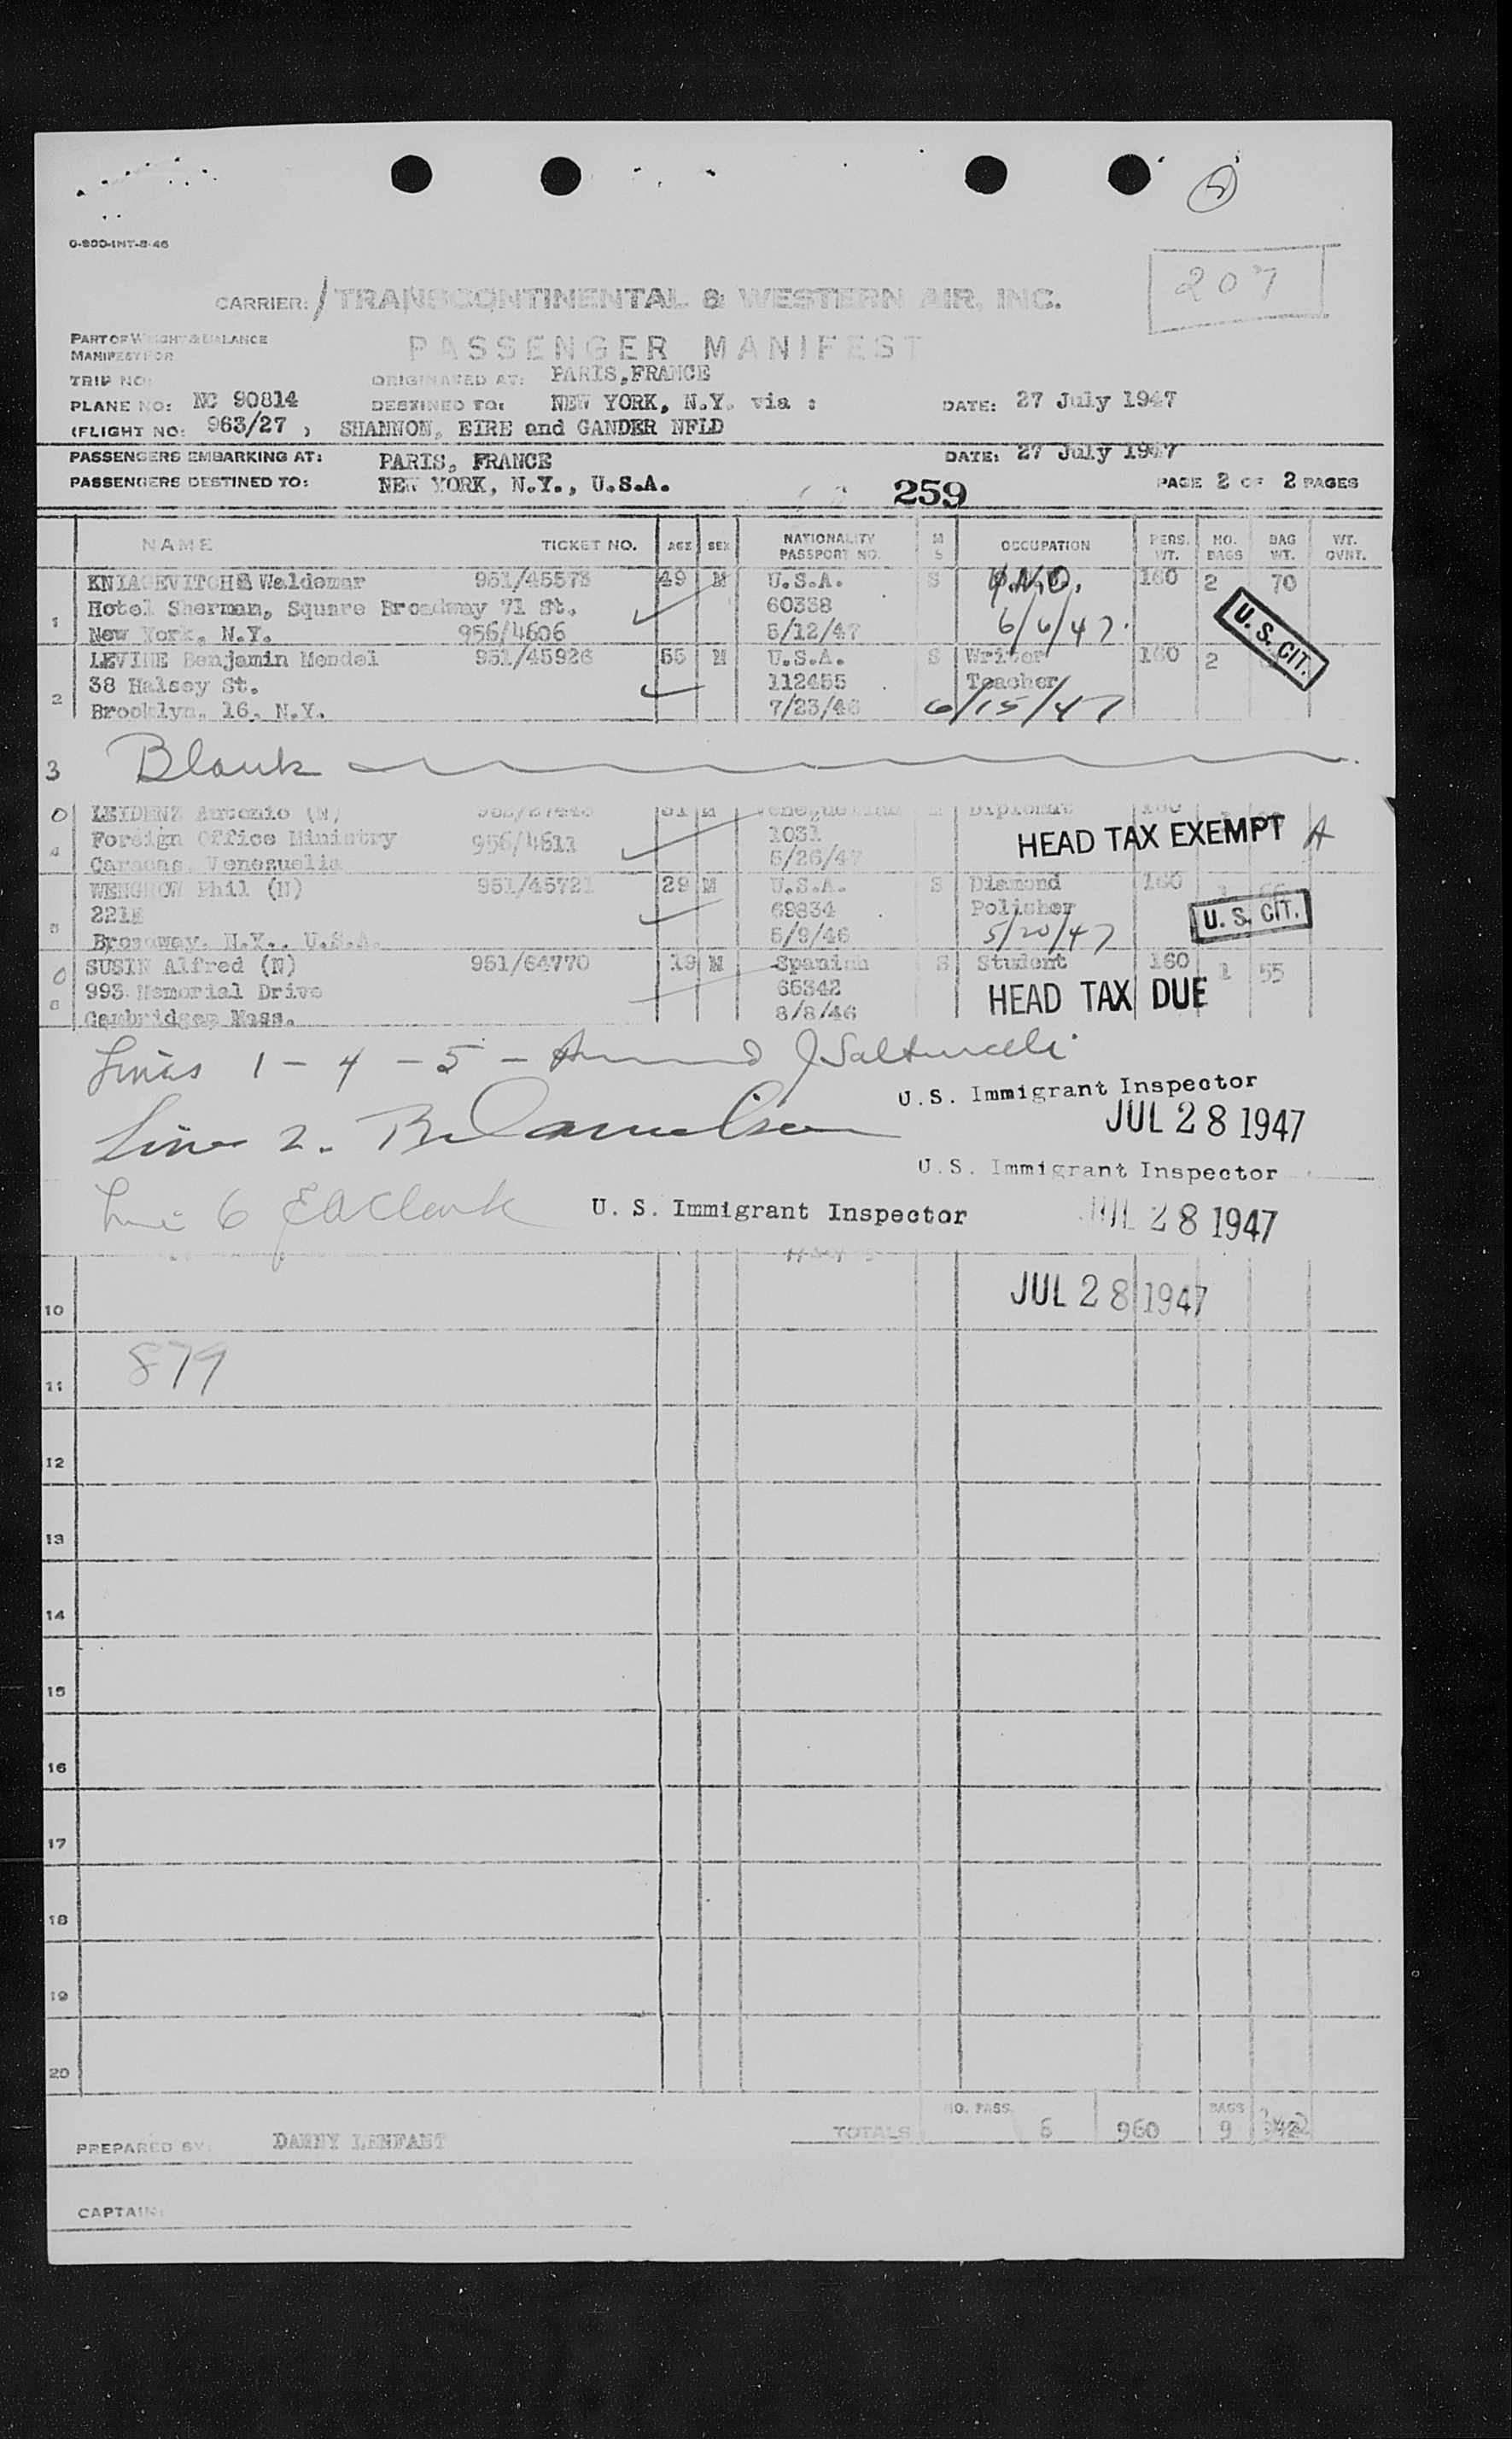 5
O-800-INT-8-46
207
CARRIER: TRANSCONTINENTAL & WESTERN AIR, INC.
PART OF WEIGHT & BALANCE
MANIFEST FOR
PASSENGER MANIFEST
TRIP NO: ORIGINATED AT: PARIS, FRANCE
PLANE NO: NC 90814 DESTINED TO: NEW YORK, N.Y. via : DATE: 27 July 1947
(FLIGHT NO: 963/27 ) SHANNON, EIRE and GANDER NFLD
PASSENGERS EMBARKING AT: PARIS, FRANCE DATE: 27 July 1947
PASSENGERS DESTINED TO: NEW YORK, N.Y., U.S.A. 259 PAGE 2 OF 2 PAGES
NAME TICKET NO. AGE SEX NATIONALITY PASSPORT NO. M S OCCUPATION PERS. WT. NO. BAGS BAG WT. WT. OVNT.
KNIAGEVITCH Waldemar 951/45573 49 M U.S.A. S U.N.O. 160 2 70
Hotel Sherman, Square Broadway 71 St. 60338
1 New York, N.Y. 956/4606 5/12/47 6/6/47. U. S. CIT.
LEVINE Benjamin Mendel 951/45926 55 M U.S.A. S Writer 160 2
38 Halsey St. 112455 Teacher
2 Brooklyn, 16, N.Y. 7/23/46 6/15/47
3 Blank
0 LEIDENZ Antonio (N) 31 M Diplomat 160
4 Foreign Office Ministry 956/4611 1031 HEAD TAX EXEMPT A
Caracas, Venezuelia 5/26/47
WENGROW Phil (N) 951/45721 29 M U.S.A. S Diamond 160 1
221 69834 Polisher U. S. CIT.
5 Broadway, N.Y., U.S.A. 5/9/46 5/20/47
0 SUSIN Alfred (N) 951/64770 19 M Spanish S Student 160 1 55
993 Memorial Drive 65342 HEAD TAX DUE
6 Cambridge, Mass. 8/8/46
Lines 1 - 4 - 5 -
U.S. Immigrant Inspector
JUL 28 1947
Line 2.
U.S. Immigrant Inspector
Line 6 E A Clark U. S. Immigrant Inspector JUL 28 1947
10 JUL 28 1947
11 879
12
13
14
15
16
17
18
19
20
TOTALS NO. PASS. 6 960 BAGS 9 342
PREPARED BY: DANNY LENFANT
CAPTAIN: